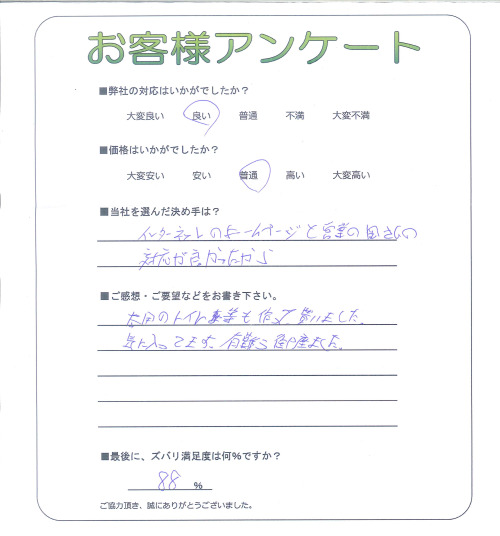 お客様アンケート
■弊社の対応はいかがでしたか？
大変良い 良い 普通 不満 大変不満
■価格はいかがでしたか？
大変安い 安い 普通 高い 大変高い
■当社を選んだ決め手は？
インターネットのホームページと営業の
対応が良かったから
■ご感想・ご要望などをお書き下さい。
のトイレ も作って貰いました。
気に入ってます。有難う御座ました。
■最後に、ズバリ満足度は何％ですか？
88 ％
ご協力頂き、誠にありがとうございました。